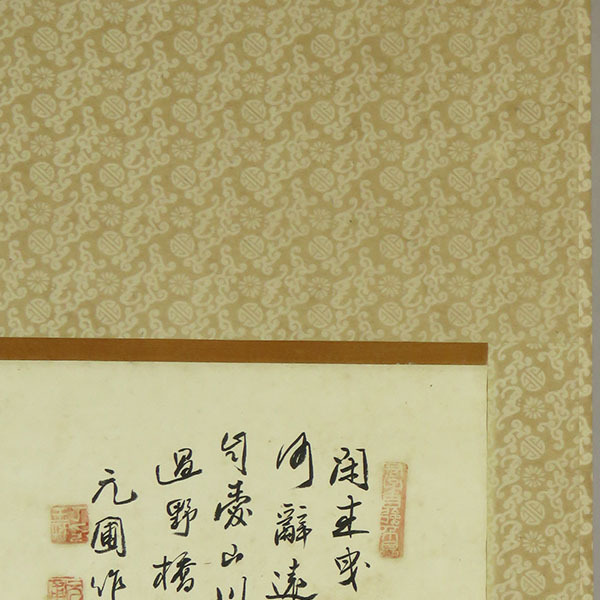 閑来曳
何辭遠
自愛山川
過野橋
元圃作